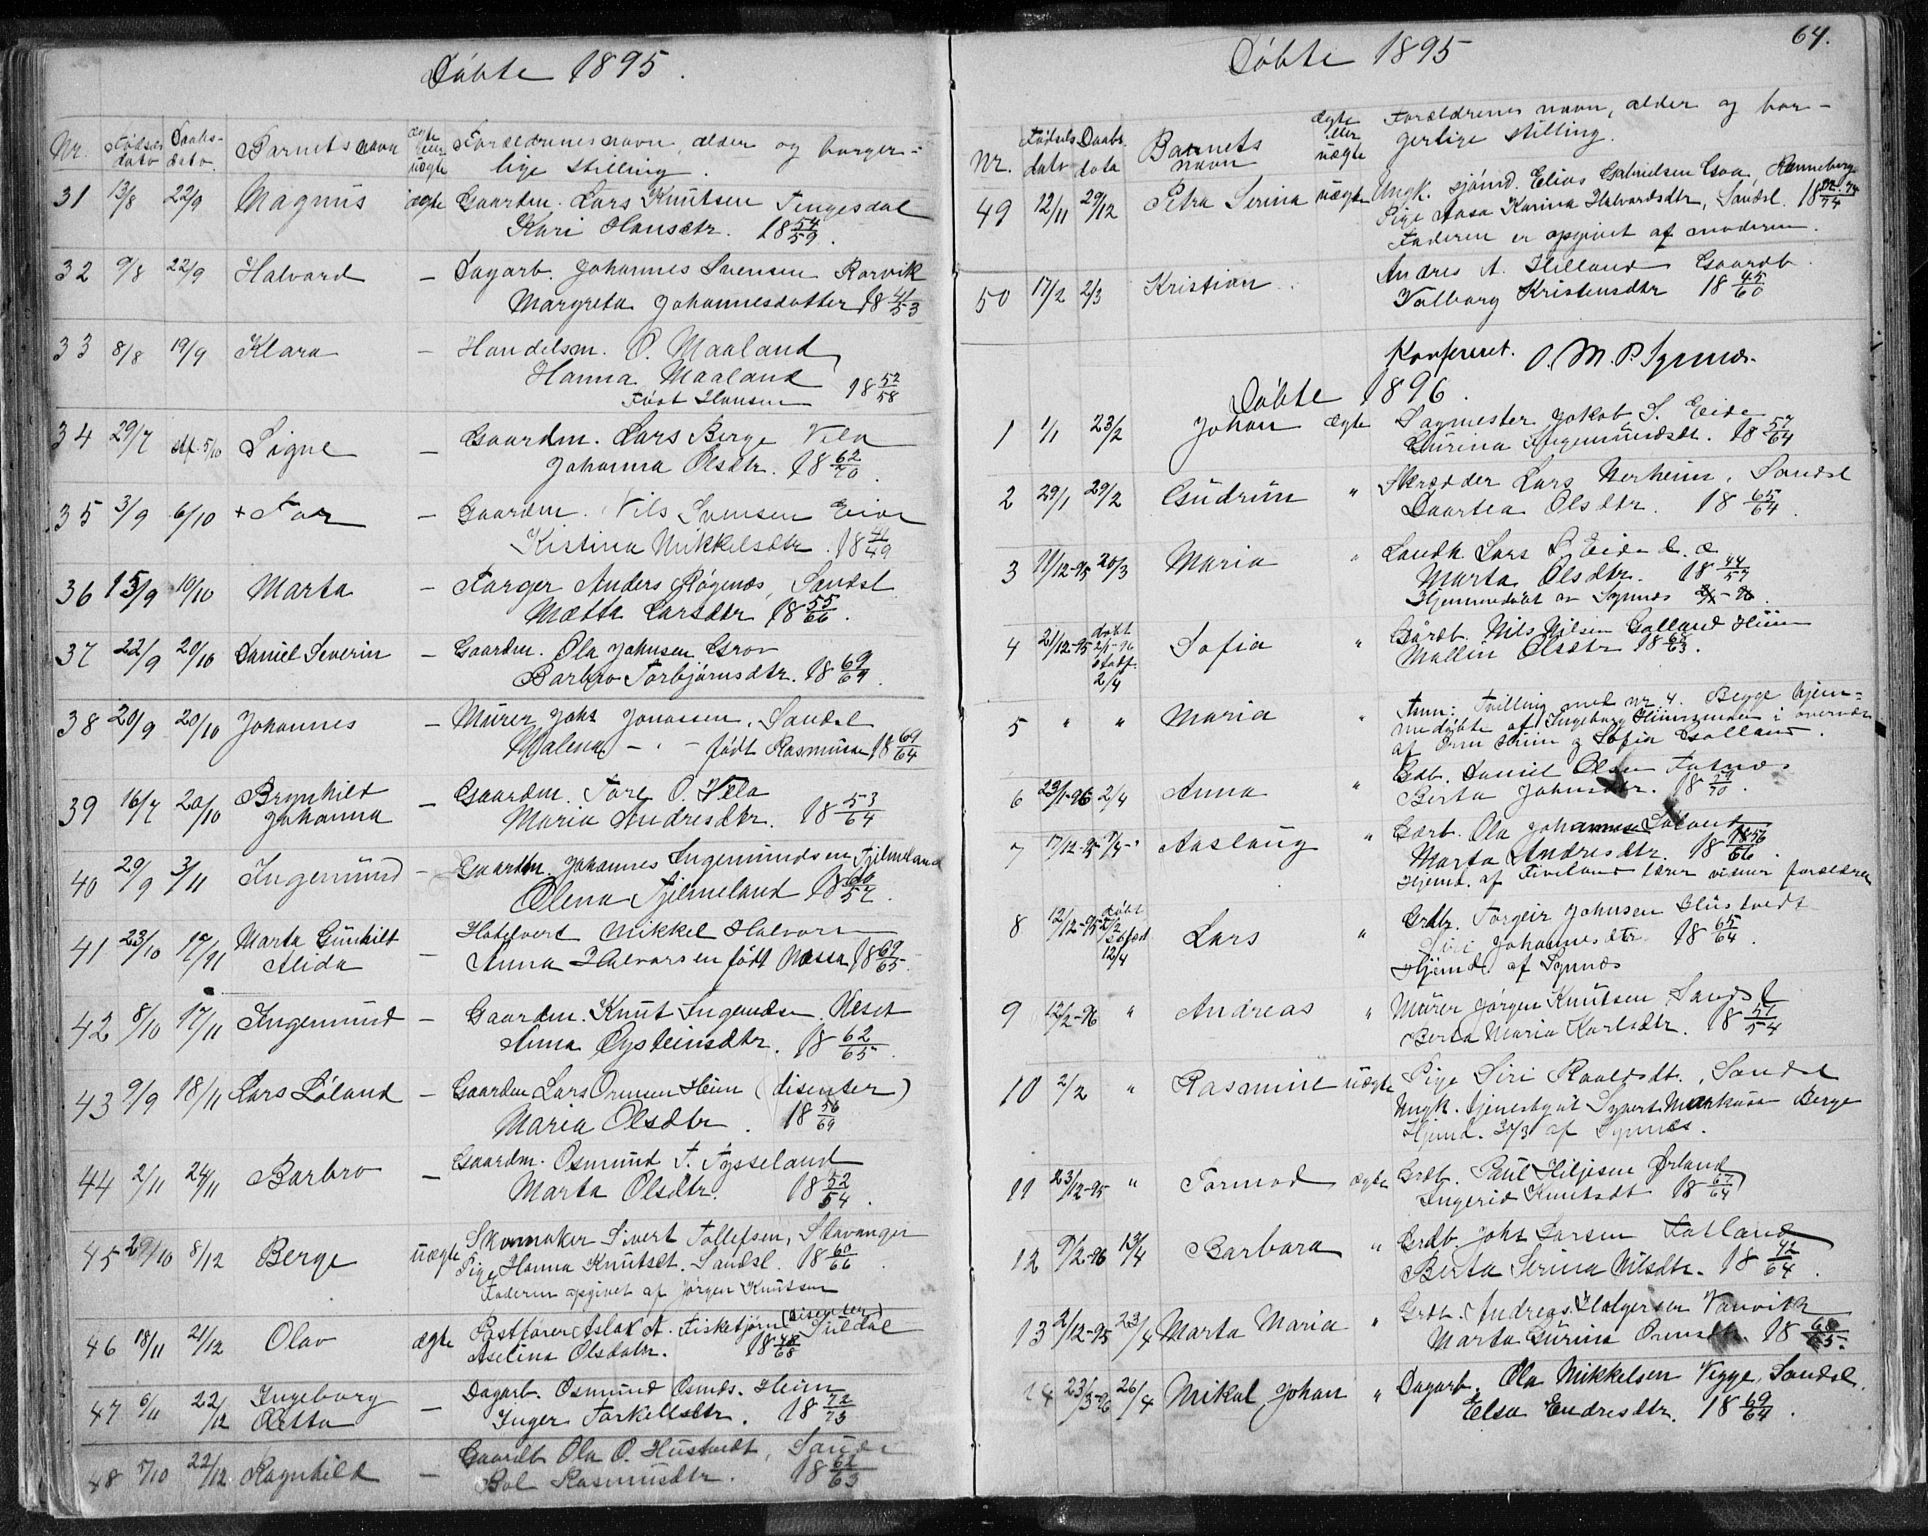 Døbte 1895.
Nr. Fødselsdato Daabsdato Barnets navn ægte eller uægte Forældrenes navn, alder og borgerlige stilling.
31 13/8 22/9 Magnus ægte Gaardm. Lars Knutsen Tengesdal
Kari Hansdtr. 18 54/59.
32 9/8 22/9 Halvard — Dagarb. Johannes Svensen Rørvik
Margreta Johannesdotter 18 41/53
33 8/8 19/9 Klara — Handelsm. O. Maaland
Hanna Maaland
født Hansen 18 52/58
34 29/7 5/10 Signe — Gaardm. Lars Berge Vela
Johanna Olsdtr. 18 62/70.
35 3/9 6/10 + Tor — Gaardm. Nils Svensen Eide
Kistina Mikkelsdtr. 18 41/49
36 15/9 19/10 Marta — Farger Anders Høgenæs, Sandsl
Mætta Larsdtr 18 55/66.
37 22/9 20/10 Daniel Severin — Gaardm. Ola Johnsen Grov
Barbro Torbjørnsdtr. 18 69/69.
38 20/9 20/10 Johannes — Murer Johs Jonassen, Sandsl
Malena — " — født Rasmussen 18 69/64
39 16/7 20/10 Brynhild Johanna — Gaardm. Tore O. Vela
Maria Andresdtr. 18 53/64
40 29/9 3/11 Ingemund — Gaardm. Johannes Ingemundsen Fjelmeland
Olena Fjelmeland 18 60/57.
41 23/10 17/11 Marta Gunhilt Alida — Hotelvert Mikkel Halvorsen
Anna Halvorsen født Næssa 18 69/65.
42 8/10 17/11 Ingemund — Gaardm. Knut Ingemdsn. Veset
Anna Øysteinsdtr. 18 62/65.
43 9/9 18/11 Lars Løland — Gaardm Lars Ormsen Heim (disenter)
Maria Olsdtr. 18 56/69
44 2/11 24/11 Barbro — Gaardm. Osmund T. Tysseland
Marta Olsdtr. 18 52/54.
45 29/10 8/12 Berge uægte Skomaker Sivert Tollefsen, Stavanger
Pige Hanna Knutsdt. Sandsl. 18 60/66.
Faderen opgivet af Jørgen Knutsen
46 18/11 21/12 Olav ægte Postfører Aslak A. Fisketjørn (disenter) Suldal
Aselina Olsdatr. 18 48/68
47 6/11 22/12 Ingeborg Oletta — Dagarb. Osmund Osmds. Heim
Inger Torkellsdtr. 18 72/73.
48 7/10 22/12 Ragnhild — Gaardb Ola O. Hustvedt, Saude
Bol Rasmusdtr. 18 62/63
Døbte 1895
64.
Nr. Fødselsdato Daabsdato Barnets navn ægte eller uægte Forældrenes navn, alder og borgerlige stilling.
49 12/11 29/12 Petra Serina uægte Ungk. sjømd. Elias Gabrielsen Goa, Renneberg
Pige Aasa Karina Halvardsdtr, Sandsl. 18 /74
Faderen er opgivet af moderen.
50 17/2 2/3 Kristian Andres A. Hilland Gaardb.
Valborg Kristensdtr 18 45/60
Konfereret. O. M. P. Synnes.
Døbte 1896.
1 1/1 23/2 Johan ægte Sagmester Jakob S. Eide
Gurina Ingemundsdt. 18 57/64
2 29/1 29/2 Gudrun " Skrædder Lars Nerheim, Sandsl
Daartea Olsdtr. 18 65/64.
3 11/12-95 20/3 Maria " Landh Lars L. Eide d. æ
Marta Olsdtr. 18 44/57
Hjemmedøbt av Synnes
4 21/12-95 døbt 2/1-96 Stadf. 2/4 Sofia " Gardb. Nils Nilsen Galland Heim
Mallin Olsdtr 18 68/63.
5 " " Maria " Anm: Tvilling med nr. 4. Begge hjemmedøbte af Ingeborg i overvær
af Orm Heim og Sofia Galland.
6 23/1-96 2/4 Anna " Grdb. Daniel Olsen Fatnes
Berta Johnsdtr. 18 59/70.
7 17/12-95 7/4 Aaslaug " Garb. Ola Johannesen Løland
Marta Andresdtr. 18 56/66.
Hjemd. af Fiveland lærer visner forældre
8 12/12-95 døbt Stadfæst 12/4 Lars " Grdb. Torgeir Johnsen Hustvedt
Siri Johannesdtr. 18 65/64.
Hjemd. af Synnes
9 12/2-96 " Andreas " Murer Jørgen Knutsen Sandsl
Berta Maria Karlsdtr. 18 51/54
10 2/2 " Rasmine uægte Pige Siri Roaldsdt., Sandsl
Ungk. tjenestgut Sjvert Markusen Berge
Hjemd. 30/3 af Synnes.
11 23/12-95 " Tormod ægte Grdb. Paul Hiljesen Ørland
Ingerid Knutsdt 18 67/64
12 9/2-96 19/4 Barbara " Grdb. Johs Larsen Fatland
Berta Serina Nilsdtr. 18 42/64.
13 2/12-95 23/4 Marta Maria " Grdb. Andreas Holgersen Vanvik
Marta Gurina Ormsdtr. 18 60/65.
14 23/3-96 26/4 Mikal Johan " Dagarb. Ola Mikkelsen Vegge, Sandsl.
Elsa Endresdtr. 18 69/64.